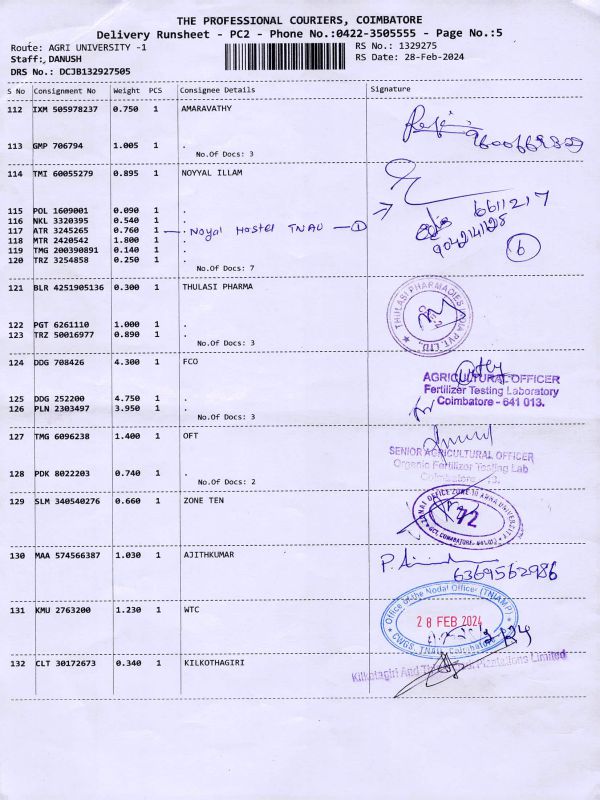 THE PROFESSIONAL COURIERS, COIMBATORE
Delivery Runsheet - PC2 - Phone No.:0422-3505555 - Page No.:5
Route: AGRI UNIVERSITY -1
RS No.: 1329275
Staff:,DANUSH
RS Date: 28-Feb-2024
DRS No.: DCJB132927505
S No Consignment No Weight PCS Consignee Details Signature
112 IXM 505978237 0.750 1 AMARAVATHY
113 GMP 706794 1.005 1 .
No.Of Docs: 3
114 TMI 60055279 0.895 1 NOYYAL ILLAM
115 POL 1609001 0.090 1 .
6611217
116 NKL 3320395 0.540 1 .
117 ATR 3245265 0.760 1 . Noyal Hostel TNAU 1
118 MTR 2420542 1.800 1 .
6
119 TMG 200390891 0.140 1 .
120 TRZ 3254858 0.250 1 .
No.Of Docs: 7
121 BLR 4251905136 0.300 1 THULASI PHARMA
THULASI PHARMACIES INDIA PVT. LTD.
122 PGT 6261110 1.000 1 .
123 TRZ 50016977 0.890 1 .
No.Of Docs: 3
124 DDG 708426 4.300 1 FCO
AGRICULTURAL OFFICER
Fertilizer Testing Laboratory
Coimbatore - 641 013.
125 DDG 252200 4.750 1 .
for
126 PLN 2303497 3.950 1 .
No.Of Docs: 3
127 TMG 6096238 1.400 1 OFT
SENIOR AGRICULTURAL OFFICER
Organic Fertilizer Testing Lab
128 PDK 8022203 0.740 1 .
No.Of Docs: 2
129 SLM 340540276 0.660 1 ZONE TEN
ZONAL OFFICE ZONE-10 ANNA UNIVERSITY
130 MAA 574566387 1.030 1 AJITHKUMAR
6369562986
131 KMU 2763200 1.230 1 WTC
Office of the Nodal Officer (TNIAMP)
28 FEB 2024
CWGS, TNAU, Coimbatore
132 CLT 30172673 0.340 1 KILKOTHAGIRI
Kilkotagiri And Plantations Limited